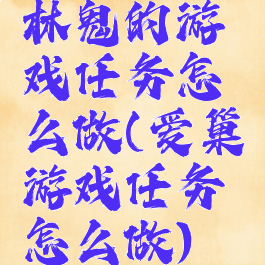 林鬼的游
戏任务怎
么做(爱巢
游戏任务
怎么做)